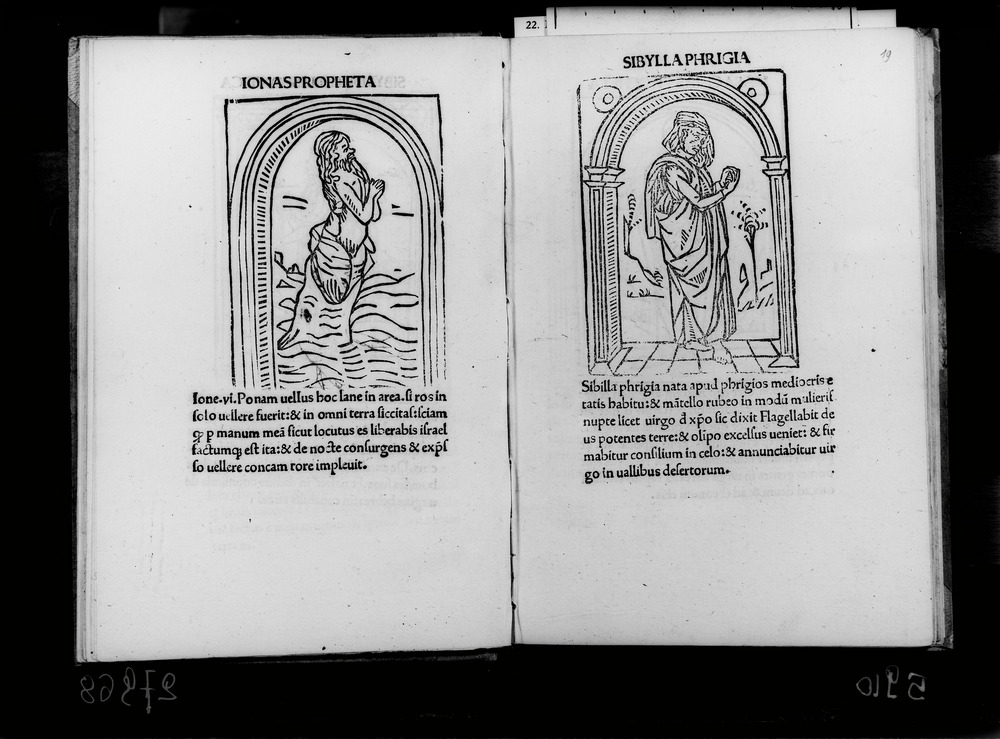 22.
19
IONAS PROPHETA
Ione.vi. Ponam uellus hoc lane in area. si ros in
solo uellere fuerit: & in omni terra siccitas: sciam
ꝙ ꝑ manum meã sicut locutus es liberabis israel
factumqꝫ est ita: & de nocte consurgens & exp̃s
so uellere concam rore impleuit.
SIBYLLA PHRIGIA
Sibilla phrigia nata apud phrigios mediocris e
tatis habitu: & mãtello rubeo in modũ mulieris
nupte licet uirgo d xp̃o sic dixit Flagellabit de
us potentes terre: & olĩpo excelsus ueniet: & fir
mabitur consilium in celo: & annunciabitur uir
go in uallibus desertorum.
27968
5910